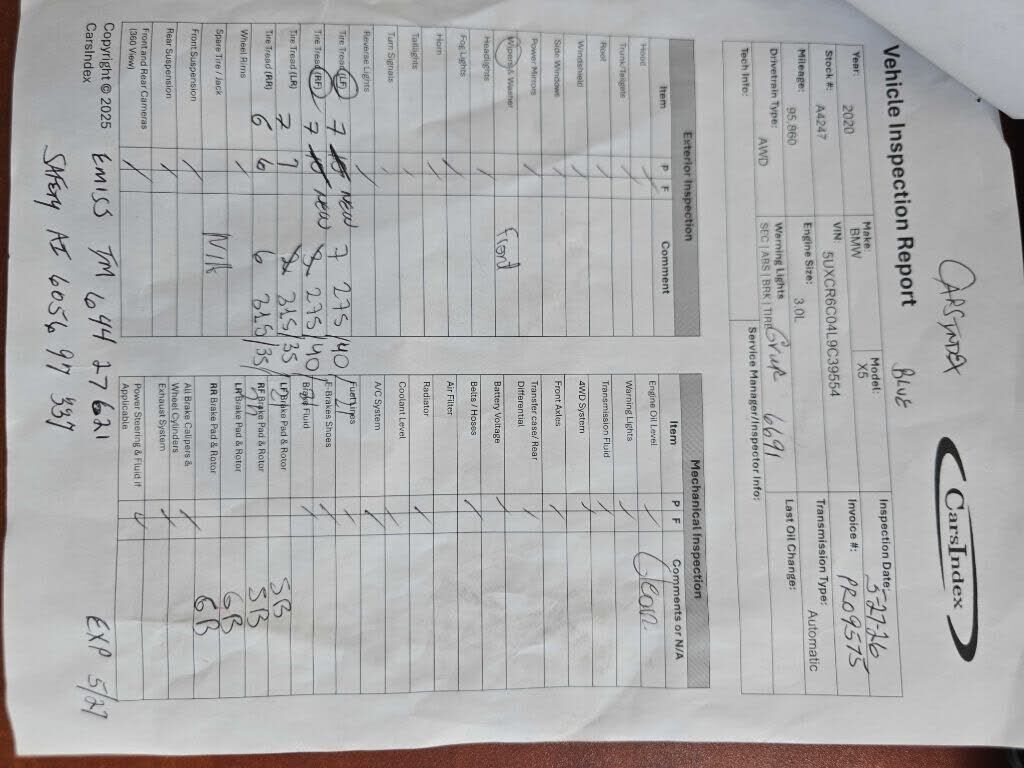 CARSINDEX
CARSINDEX
Vehicle Inspection Report
BLUE
Inspection Date: 5-27-26
Year: 2020
Make: BMW
Model: X5
Invoice #: PRO9575
Stock #: A4247
VIN: 5UXCR6C04L9C39554
Transmission Type: Automatic
Mileage: 95,860
Engine Size: 3.0L
Last Oil Change:
Drivetrain Type: AWD
Warning Lights
SEC | ABS | BRK | TIRE
6691
Tech Info:
Service Manager/Inspector Info:
Exterior Inspection
Item P F Comment
Hood /
Trunk/Tailgate /
Roof /
Windshield /
Side Windows /
Power Mirrors /
Wipers & Washer Front
Headlights /
Fog Lights /
Horn /
Taillights /
Turn Signals /
Reverse Lights /
Tire Tread (LF) 7 NEW 7 275/40/21
Tire Tread (RF) 7 NEW 275/40
Tire Tread (LR) 7 7 315/35
Tire Tread (RR) 6 6 6 315/35
Wheel Rims /
Spare Tire / Jack N/A
Front Suspension /
Rear Suspension /
Front and Rear Cameras (360 View) /
Mechanical Inspection
Item P F Comments or N/A
Engine Oil Level / Clean
Warning Lights /
Transmission Fluid /
4WD System /
Front Axles /
Transfer case/ Rear Differential /
Battery Voltage /
Belts / Hoses /
Air Filter
Radiator
Coolant Level /
A/C System /
Fuel Lines /
E-Brakes Shoes /
Brake Fluid /
LF Brake Pad & Rotor 5B
RF Brake Pad & Rotor 5B
LR Brake Pad & Rotor 6B
RR Brake Pad & Rotor 6B
All Brake Calipers & Wheel Cylinders /
Exhaust System /
Power Steering & Fluid If Applicable
Copyright © 2025
CarsIndex
EMISS TM 644 27621
EXP 5/27
SAFETY AI 6056 97 337